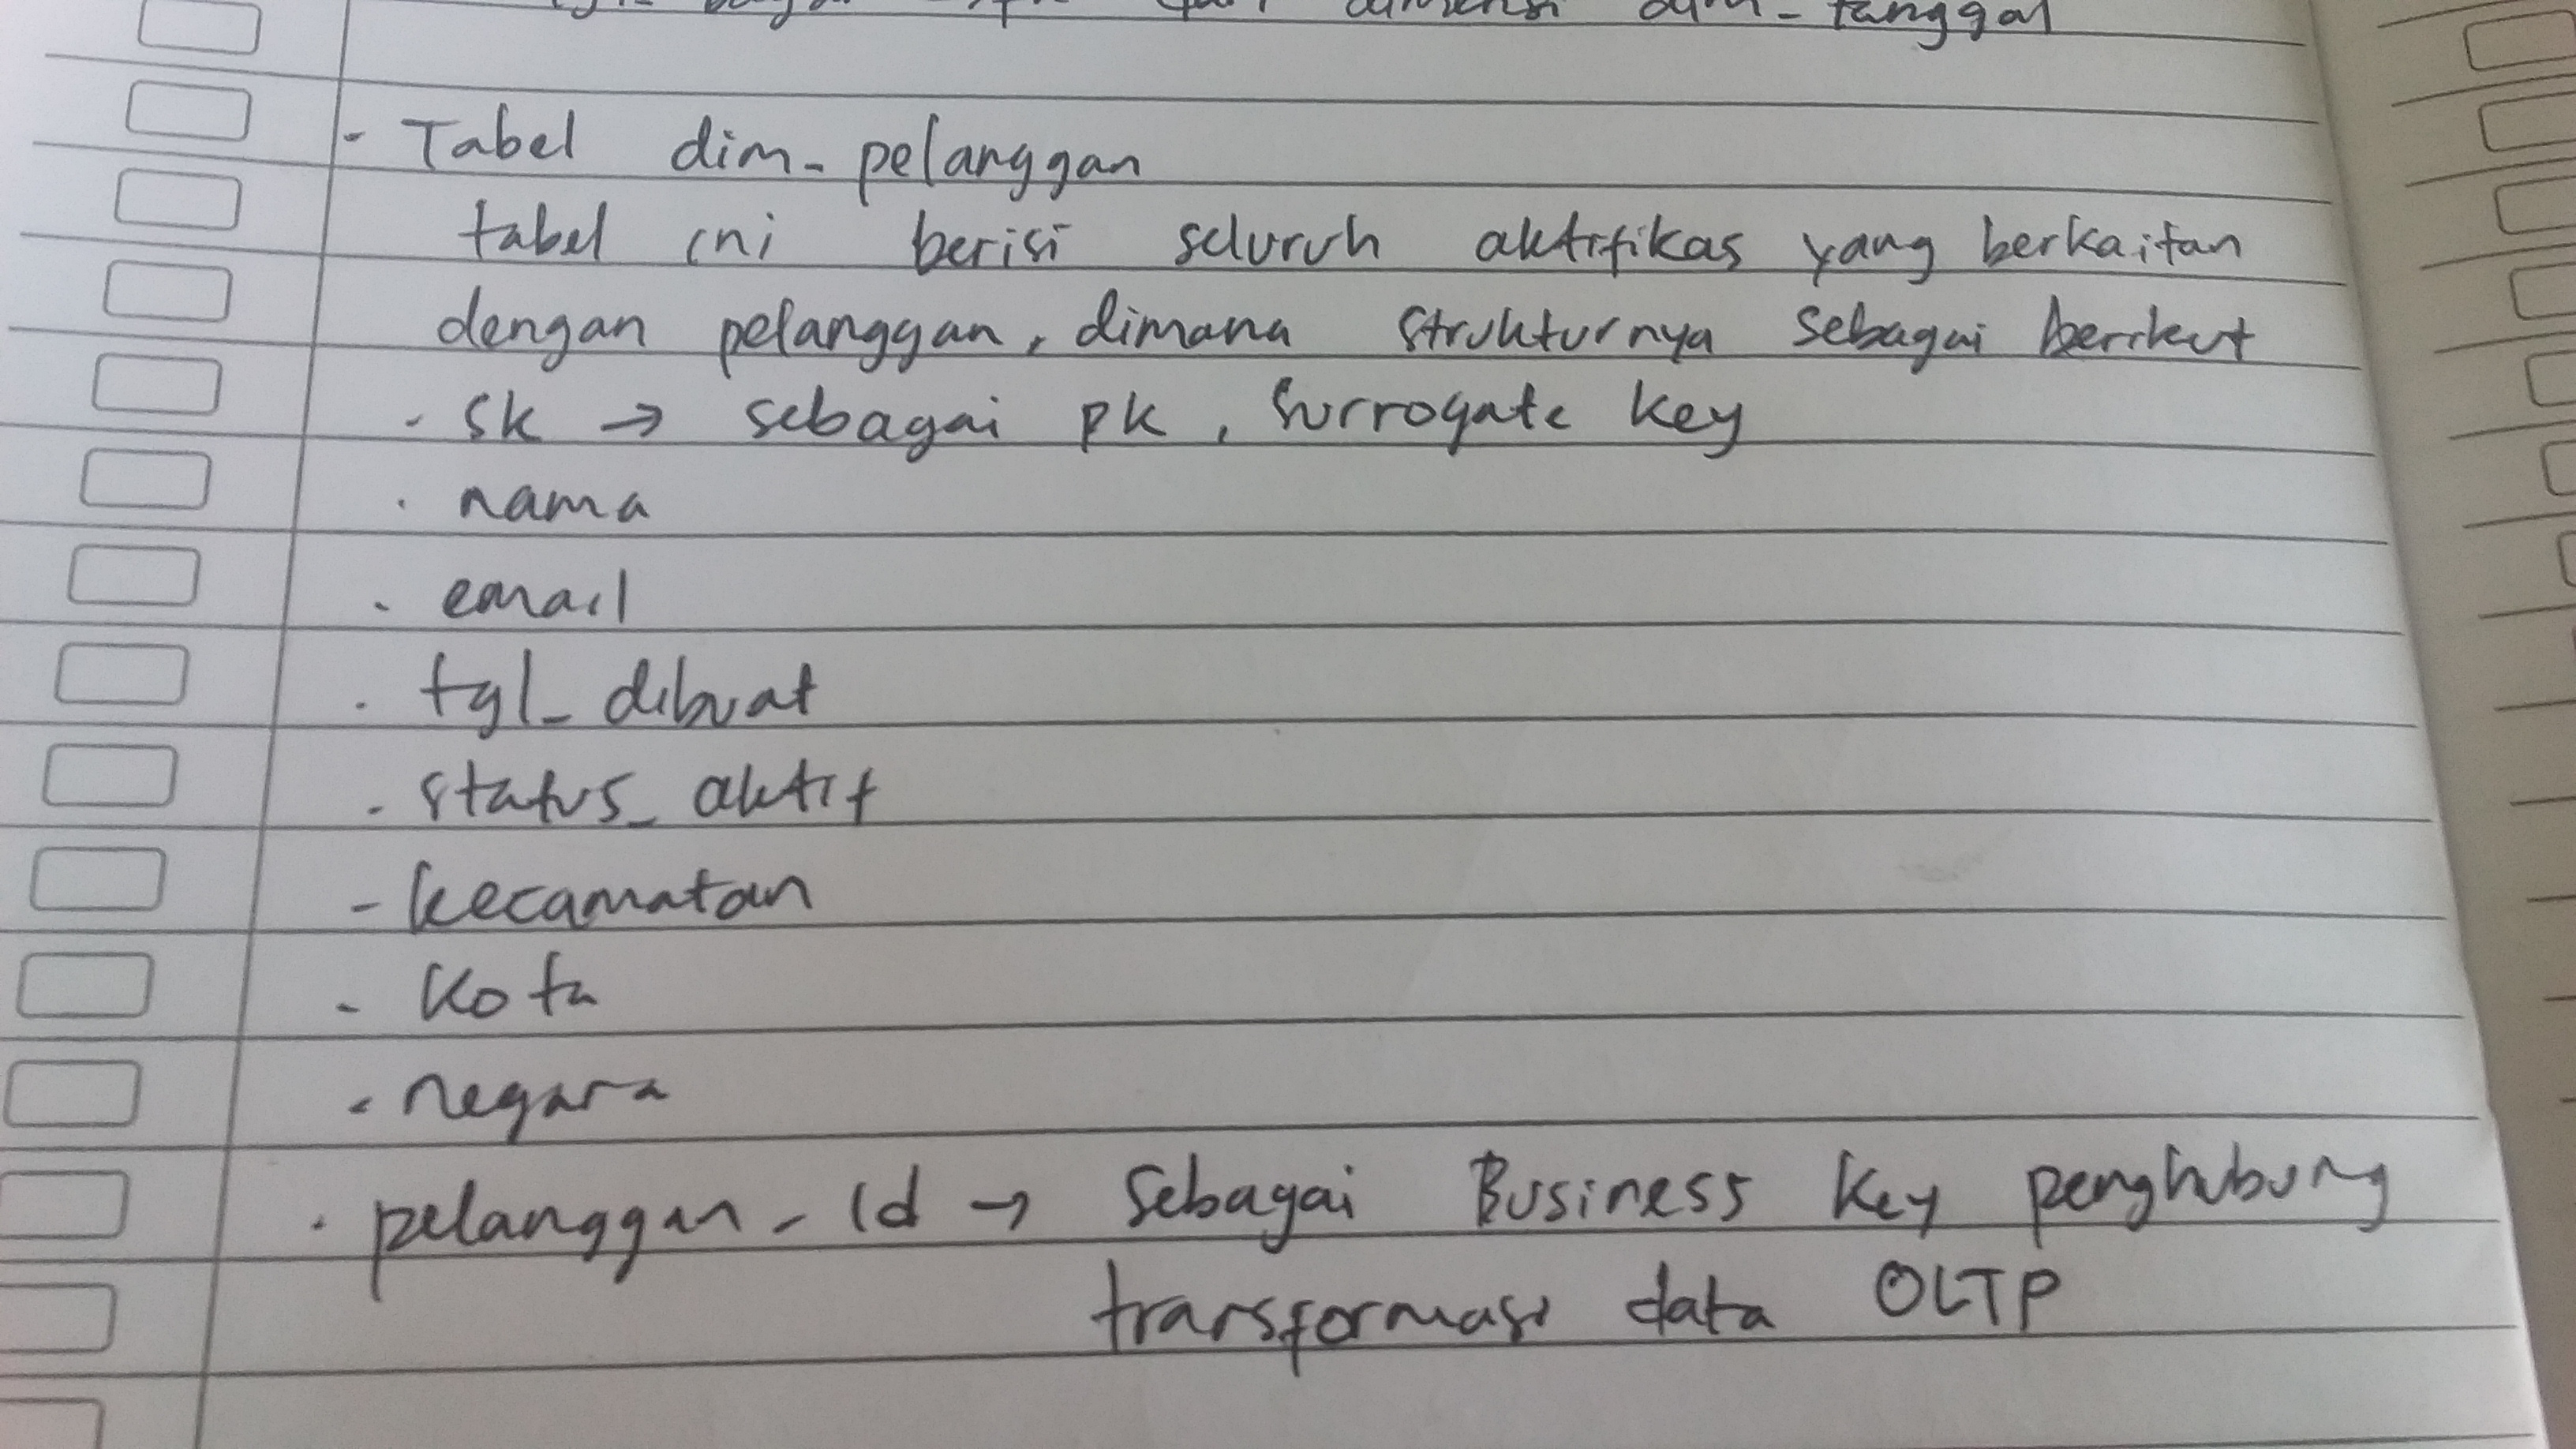 dimensi dim_tanggal
- Tabel dim_pelanggan
tabel ini berisi seluruh aktifikas yang berkaitan
dengan pelanggan, dimana strukturnya sebagai berikut
. sk → sebagai pk, surrogate key
. nama
. email
. tgl_dibuat
. status_aktif
- kecamatan
- kota
- negara
. pelanggan_id → sebagai Business key penghubung
transformasi data OLTP